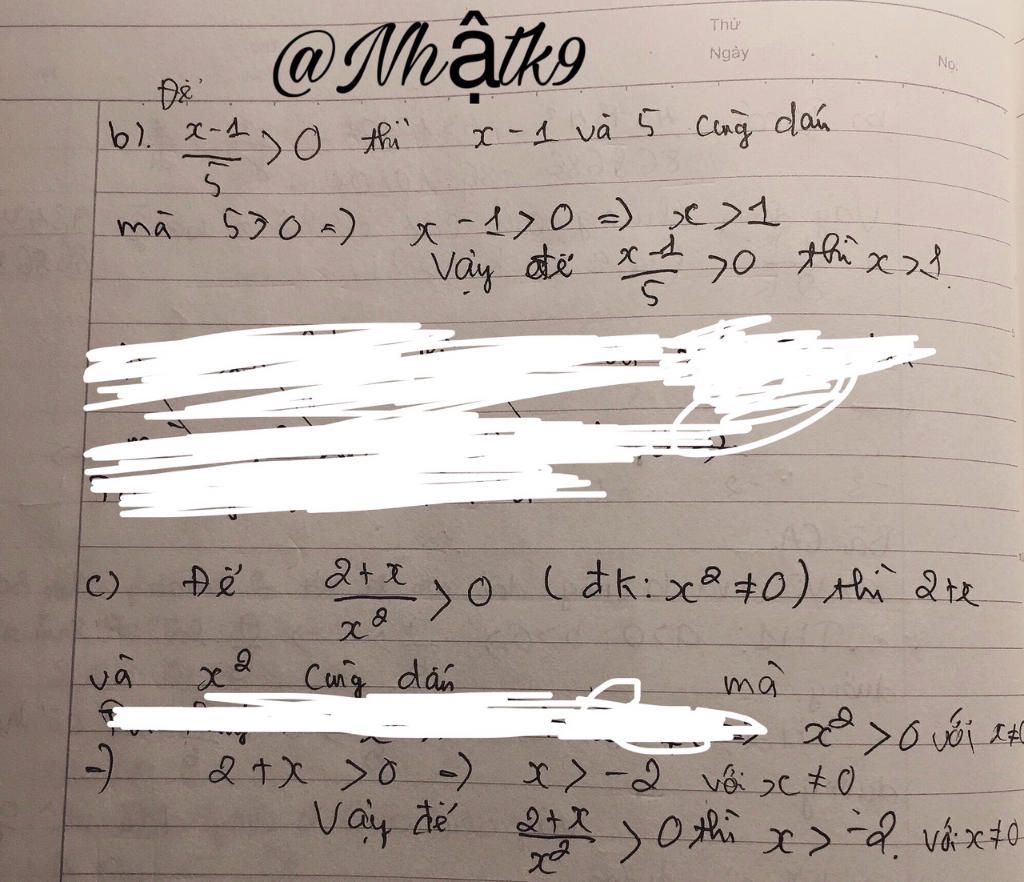 @Nhậtk9
Thứ
Ngày
No.
Để
b). x-1/5 > 0 thì x - 1 và 5 cùng dấu
mà 5>0 => x - 1 > 0 => x > 1
Vậy để x-1/5 > 0 thì x > 1.
c) Để 2+x/x² > 0 (đk: x² ≠ 0) thì 2+x
và x² cùng dấu mà
x² > 0 với x≠0
=) 2 + x > 0 =) x > -2 với x ≠ 0
Vậy để 2+x/x² > 0 thì x > -2. với x≠0